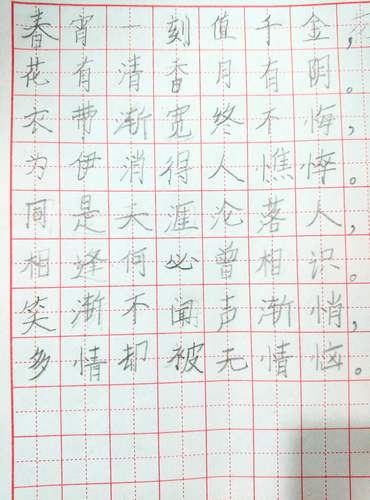 春宵一刻值千金，
花有清香月有阴。
衣带渐宽终不悔，
为伊消得人憔悴。
同是天涯沦落人，
相逢何必曾相识。
笑渐不闻声渐悄，
多情却被无情恼。